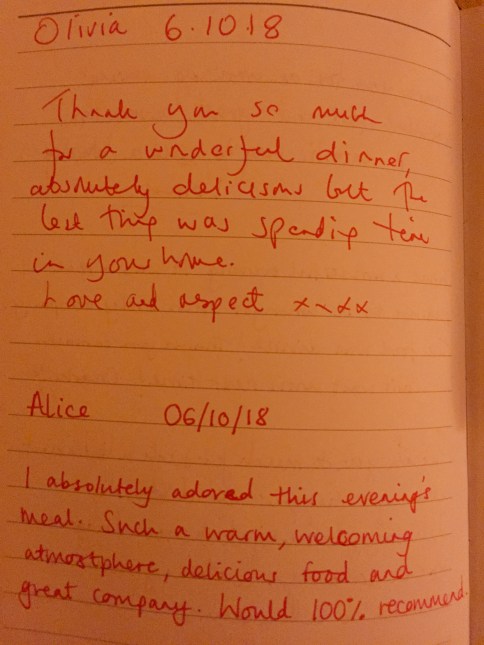 Olivia 6.10.18
Thank you so much
for a wonderful dinner,
absolutely delicious but the
best thing was spending time
in your home.
Love and respect xxxx
Alice 06/10/18
I absolutely adored this evening's
meal. Such a warm, welcoming
atmostphere, delicious food and
great company. Would 100% recommend.